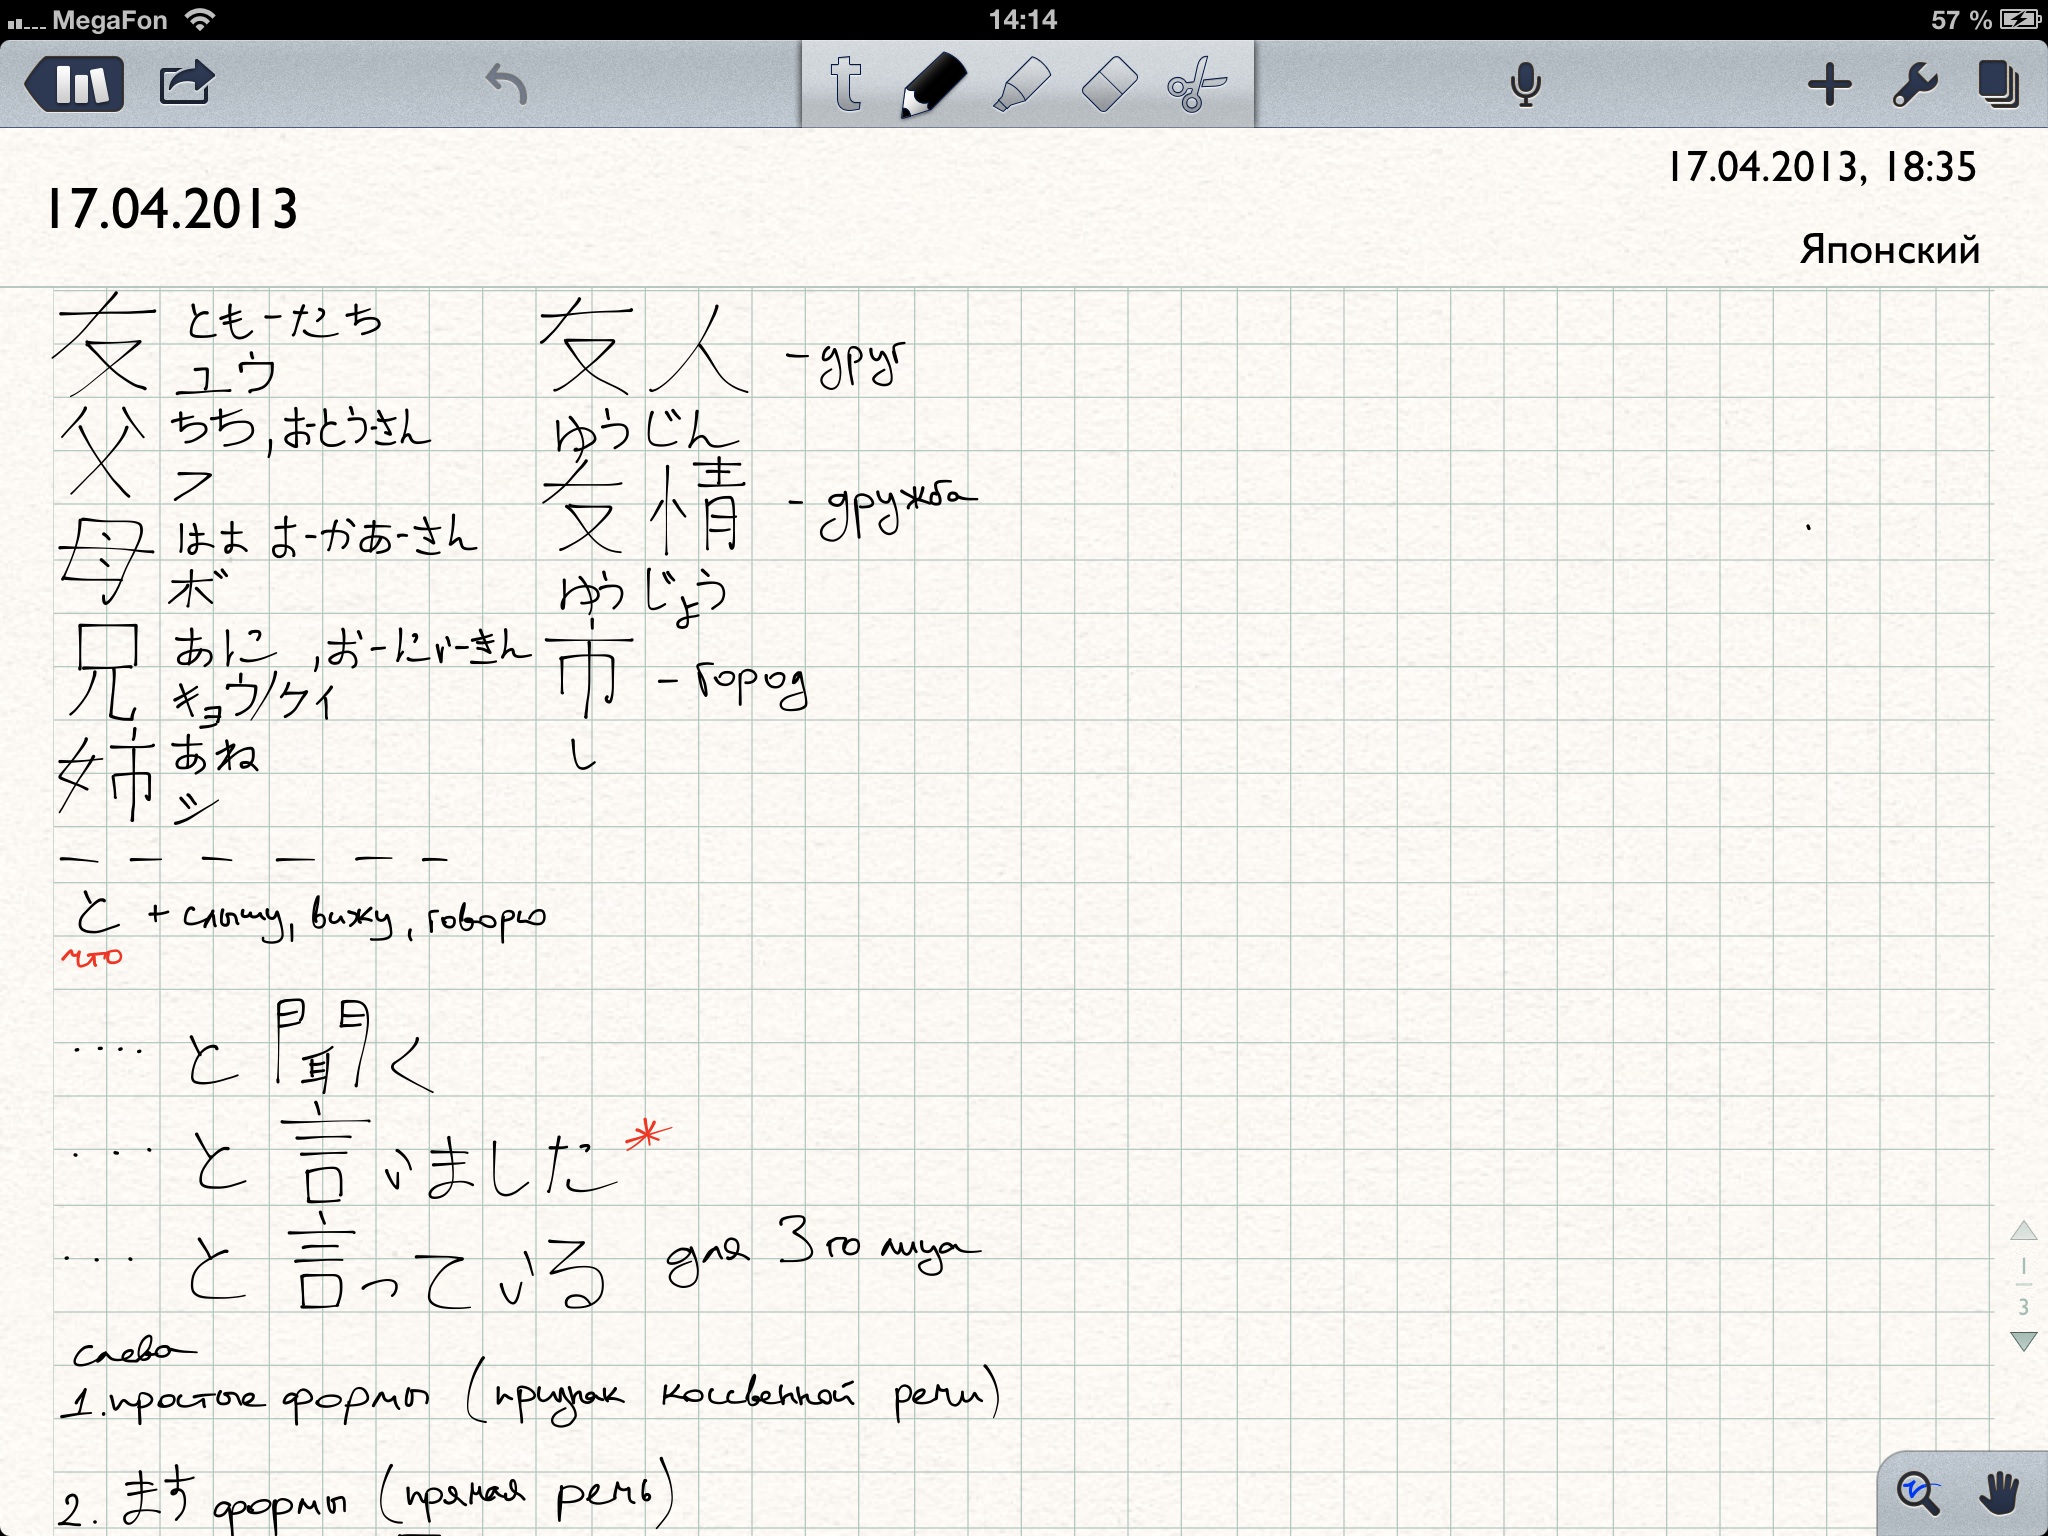 MegaFon 14:14 57 %
t
17.04.2013, 18:35
17.04.2013
Японский
友 とも-だち
ユウ
父 ちち, おとうさん
フ
母 はは おーかあーさん
ボ
兄 あに , おーにいーさん
キョウ/ケイ
姉 あね
シ
友人 - друг
ゆうじん
友情 - дружба
ゆうじょう
市 - город
し
と + слышу, вижу, говорю
что
.... と 聞く
... と 言いました *
... と 言っている для 3го лица
слева
1. простые формы (признак коссвенной речи)
2. ます формы (прямая речь)
1
3